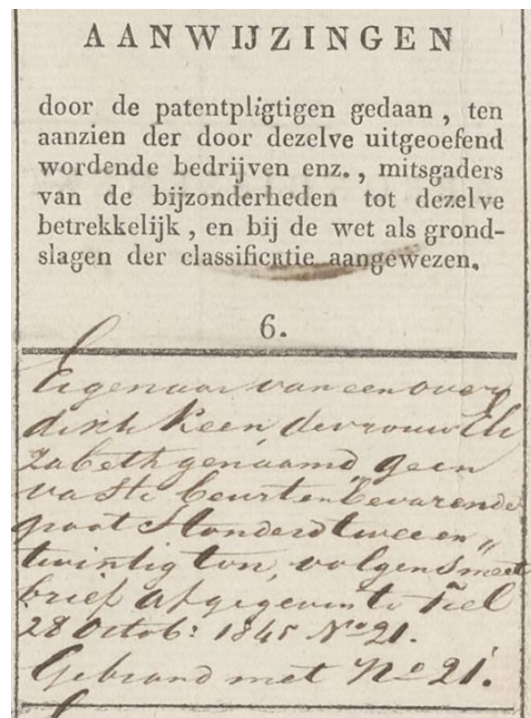 AANWIJZINGEN
door de patentpligtigen gedaan, ten
aanzien der door dezelve uitgeoefend
wordende bedrijven enz., mitsgaders
van de bijzonderheden tot dezelve
betrekkelijk, en bij de wet als grond-
slagen der classificatie aangewezen.
6.
Eigenaar van een over
dekt Keen, de vrouw Eli
zabeth genaamd, geen
vaste beurten bevarende
groot Honderd twee en„
twintig ton, volgens meet
brief afgegeven te Tiel
28 Octob: 1845 No 21.
Gebrand met No 21.